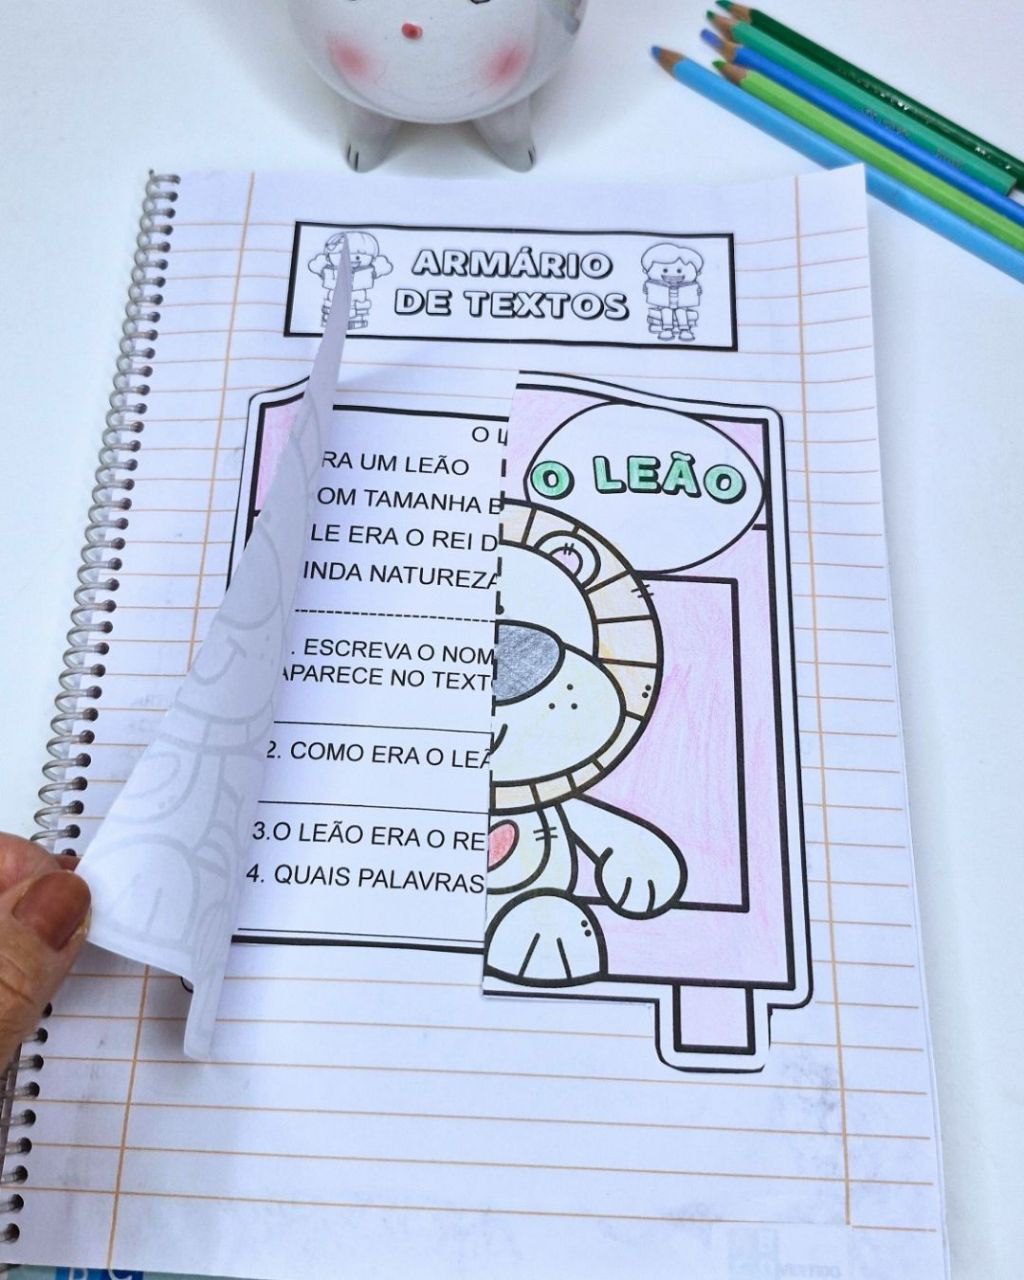 ARMÁRIO
DE TEXTOS
O LEÃO
O L
RA UM LEÃO
OM TAMANHA B
LE ERA O REI D
INDA NATUREZA
. ESCREVA O NOM
APARECE NO TEXT
2. COMO ERA O LEÃ
3.O LEÃO ERA O RE
4. QUAIS PALAVRAS